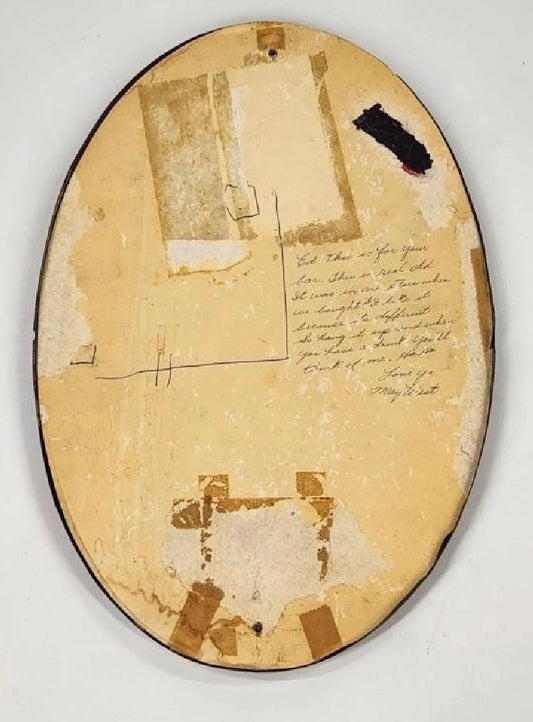 Ed this is for your
bar. This is real old
It was in are store when
we bought it. I like it
because its different
So hang it up and when
you have a drink you'll
think of me. Ha Ha
Love ya
May West